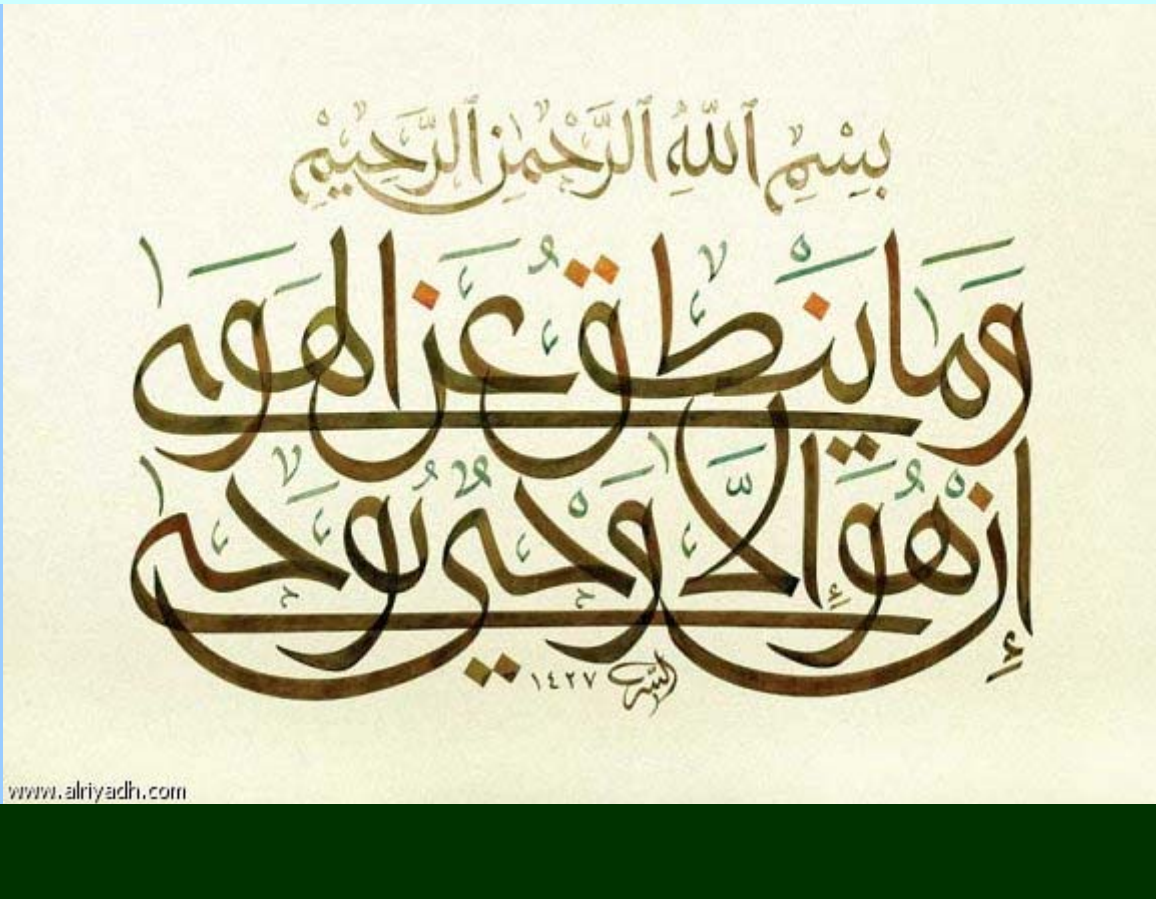 بِسْمِ ٱللَّهِ ٱلرَّحْمٰنِ ٱلرَّحِيْمِ
وَمَا يَنْطِقُ عَنِ الهَوَى
إِنْ هُوَ إِلَّا وَحْيٌ يُوحَى
١٤٢٧
www.alriyadh.com